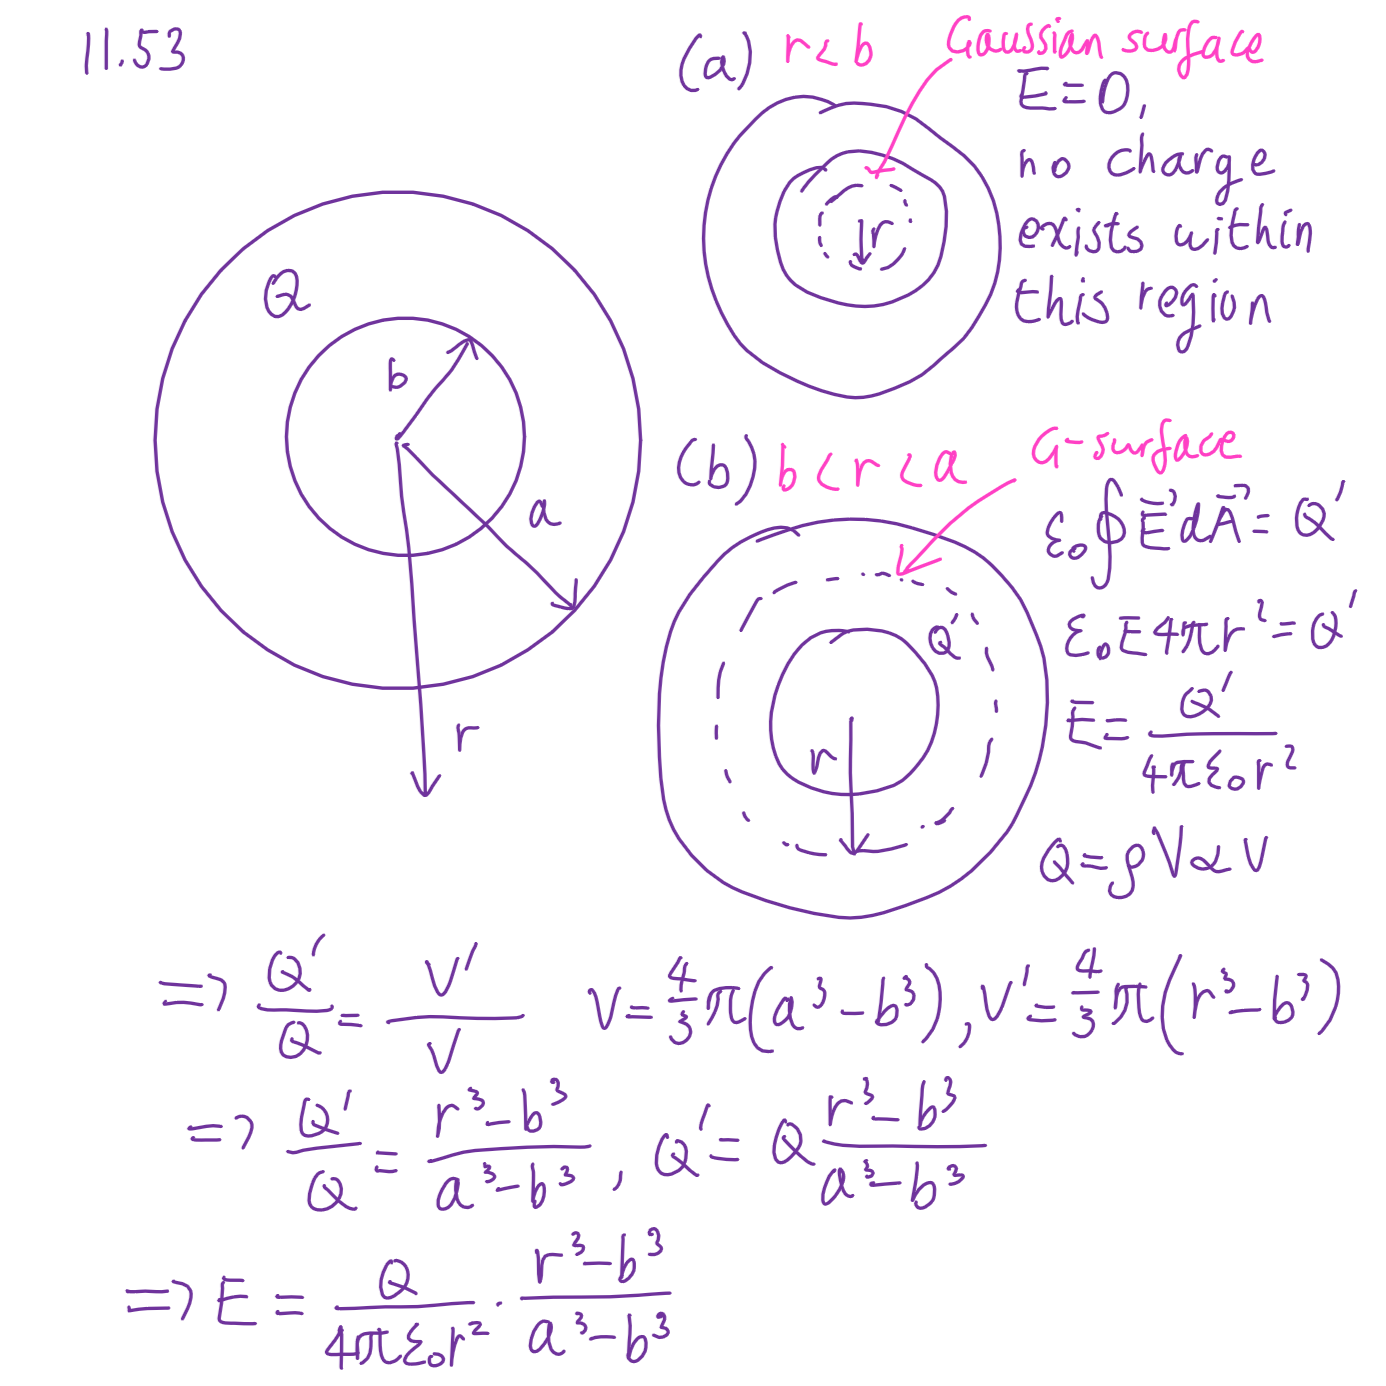 11.53
Q
b
a
r
(a) r < b
Gaussian surface
r
E = 0,
no charge
exists within
this region
(b) b < r < a
G-surface
Q'
r
ε₀∮E⃗ dA⃗ = Q'
ε₀E4πr² = Q'
E = Q' / 4πε₀r²
Q = ρV ∝ V
⇒ Q'/Q = V'/V    V = 4/3 π(a³ − b³), V' = 4/3 π(r³ − b³)
⇒ Q'/Q = (r³ − b³)/(a³ − b³), Q' = Q (r³ − b³)/(a³ − b³)
⇒ E = Q/(4πε₀r²) · (r³ − b³)/(a³ − b³)